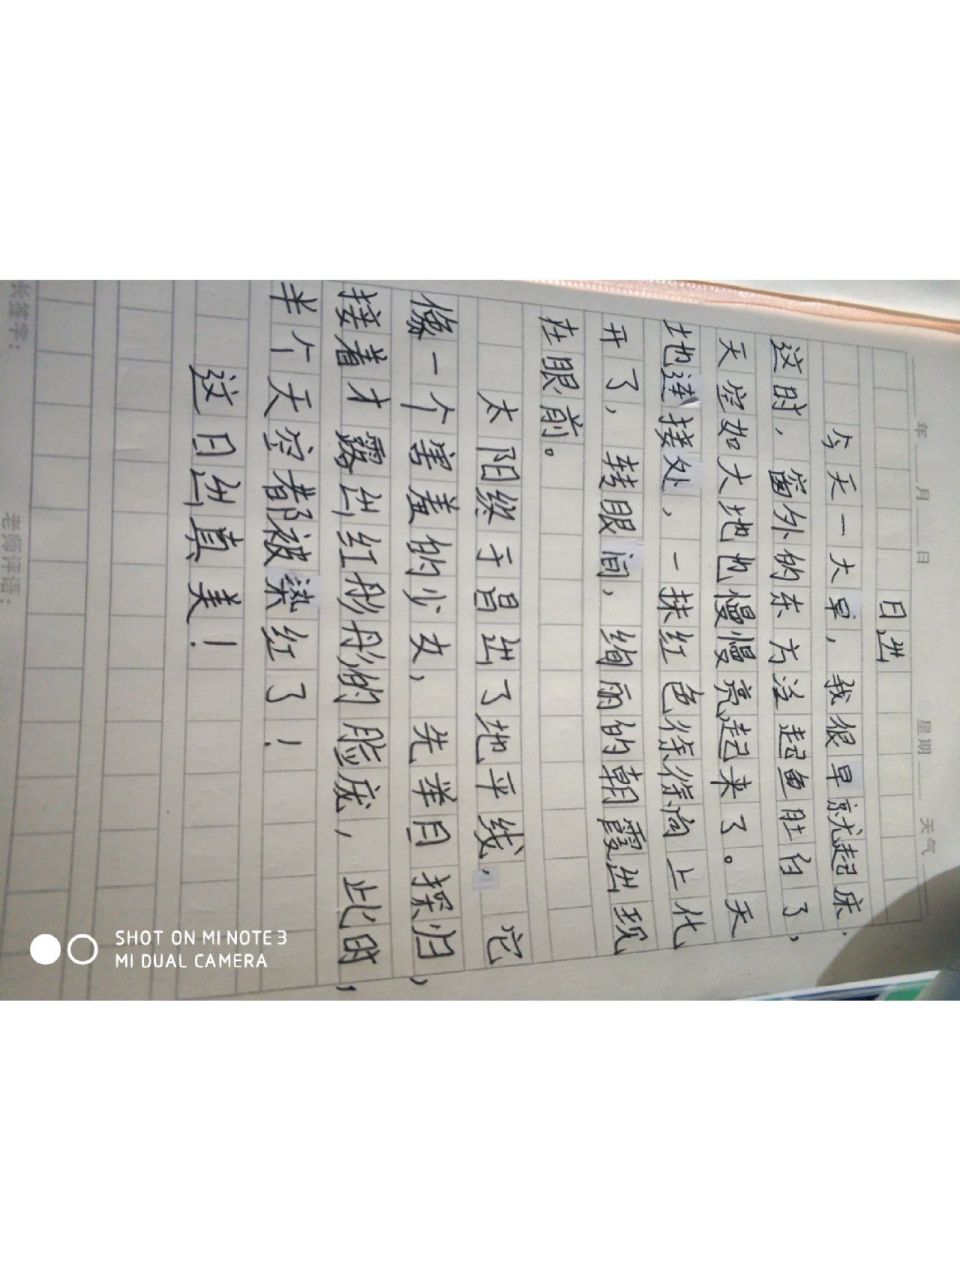 年 月 日 星期 天气
日出
今天一大早，我很早就起床，
这时，窗外的东方泛起鱼肚白了，
天空如大地也慢慢亮起来了。天
地连接处，一抹红色徐徐向上化
开了，转眼间，绚丽的朝霞出现
在眼前。
太阳终于冒出了地平线，它
像一个害羞的少女，先举目探归，
接着才露出红彤彤的脸庞，此时，
半个天空都被染红了！
这日出真美！
长签字： 老师评语：
SHOT ON MI NOTE 3
MI DUAL CAMERA